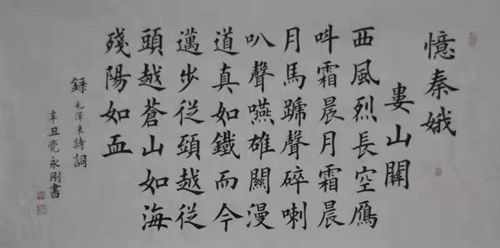 憶秦娥
婁山關
西風烈長空鴈
呌霜晨月霜晨
月馬蹄聲碎喇
叭聲嚥雄關漫
道真如鐵而今
邁步從頭越從
頭越蒼山如海
殘陽如血
錄毛澤東詩詞
辛丑党永剛書